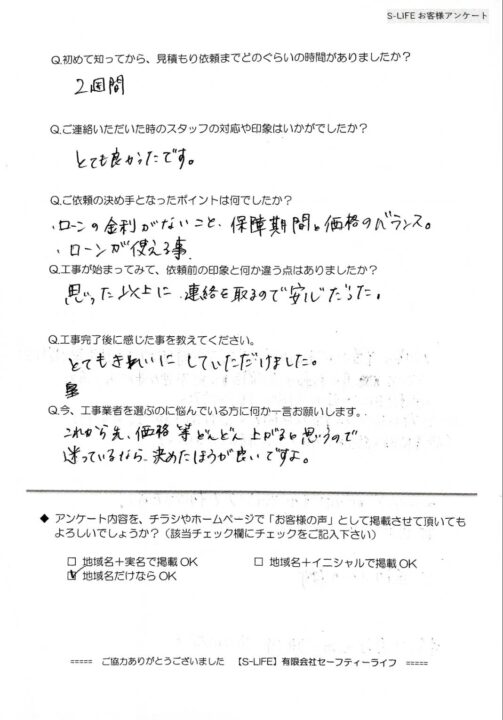 S-LIFE お客様アンケート
Q.初めて知ってから、見積もり依頼までどのぐらいの時間がありましたか？
2週間
Q.ご連絡いただいた時のスタッフの対応や印象はいかがでしたか？
とても良かったです。
Q.ご依頼の決め手となったポイントは何でしたか？
・ローンの金利がないこと、保障期間と価格のバランス。
・ローンが使える事
Q.工事が始まってみて、依頼前の印象と何か違う点はありましたか？
思った以上に、連絡を取るので安心だった。
Q.工事完了後に感じた事を教えてください。
とてもきれいにしていただけました。
Q.今、工事業者を選ぶのに悩んでいる方に何か一言お願いします。
これから先、価格等どんどん上がると思うので
迷っているなら、決めたほうが良いですよ。
◆ アンケート内容を、チラシやホームページで「お客様の声」として掲載させて頂いても
よろしいでしょうか？（該当チェック欄にチェックをご記入下さい）
□ 地域名＋実名で掲載 OK □ 地域名＋イニシャルで掲載 OK
☑ 地域名だけなら OK
===== ご協力ありがとうございました 【S-LIFE】有限会社セーフティーライフ =====